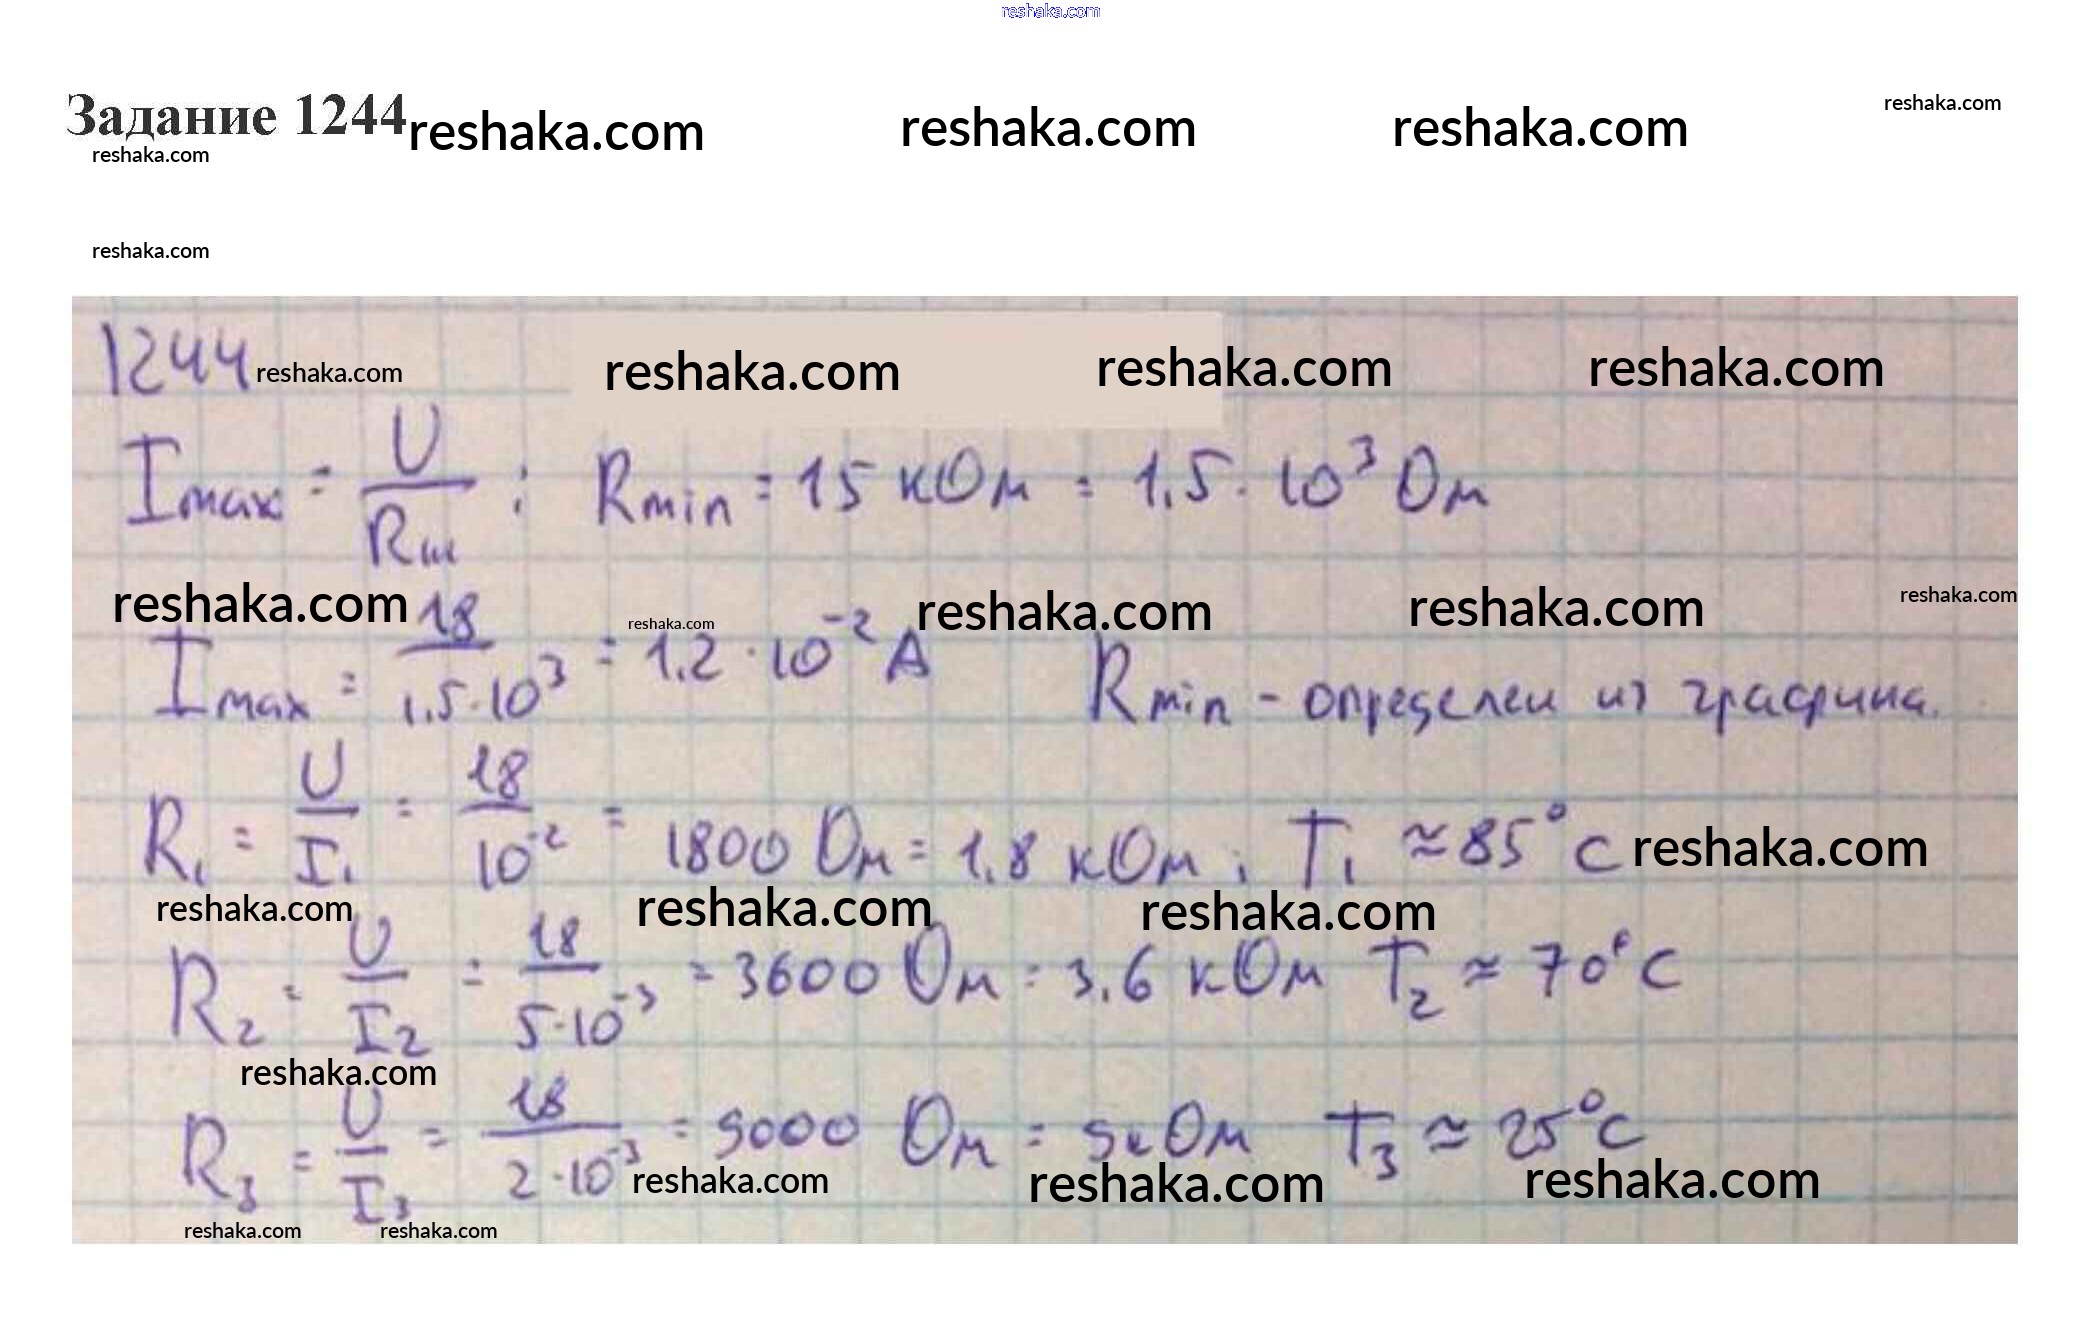 reshaka.com
Задание 1244 reshaka.com reshaka.com reshaka.com reshaka.com
reshaka.com
reshaka.com
1244 reshaka.com reshaka.com reshaka.com reshaka.com
I max = U / R ; R min = 15 кОм = 1.5 · 10³ Ом
reshaka.com reshaka.com reshaka.com reshaka.com reshaka.com
I max = 18 / 1.5 · 10³ = 1.2 · 10⁻² А R min - определен из графика.
R₁ = U / I₁ = 18 / 10⁻² = 1800 Ом = 1.8 кОм ; T₁ ≈ 85°C reshaka.com
reshaka.com reshaka.com reshaka.com
R₂ = U / I₂ = 18 / 5 · 10⁻³ = 3600 Ом = 3.6 кОм T₂ ≈ 70°C
reshaka.com
R₃ = U / I₃ = 18 / 2 · 10⁻³ = 9000 Ом = 9кОм T₃ ≈ 25°C
reshaka.com reshaka.com reshaka.com
reshaka.com reshaka.com